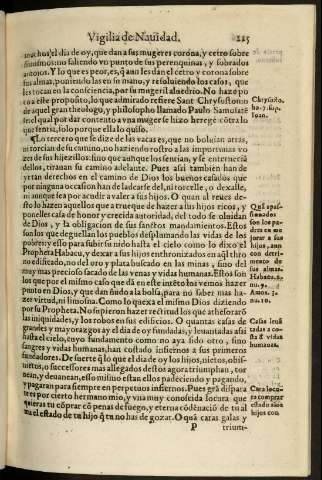 Vigilia de Nauidad.
225
el dia de oy, que dan a sus mugeres corona, y cetro sobre
no saliendo vn punto de sus perenquinas, y sobrados
antojos. Y lo que es peor, es, q̃ aun les dan el cetro y corona sobre
sus almas, poniendo las en su mano, y resoluiendo los casos, que
les tocan en la consciencia, por su mugeril aluedrio. No haze po
co a este proposito, lo que admirado refiere Sant Chrysostomo
de aquel gran theologo, y philosopho llamado Paulo Samosate
el qual por dar contento a vna muger se hizo herege cõtra lo
que sentia, solo por que ella lo quiso.
Lo tercero que se dize de las vacas es, que no boluian atras,
ni torcian de su camino, no haziendo rostro a las importunas vo
zes de sus hijezillos: sino que aunque los sentian, y se enternecia
dellos, tirauan su camino adelante. Pues assi tambien han de
yr tan derechos en el camino de Dios los buenos casados que
por ninguna occasion han de ladearse del, ni torcelle, o dexalle,
ni aunque sea por acudir a valer a sus hijos. O quan al reues de-
sto lo hazen aquellos que a trueque de hazer a sus hijos ricos, y
ponelles casa de honor y crecida autoridad, del todo se oluidan
de Dios, y la obligacion de sus sanctos mandamientos. Estos
son los que deguellan los pueblos desplumando las vidas de los
pobres: y esto para subir su nido hasta el cielo como lo dixo el
Propheta Habacu, y dexar a sus hijos enthronizados en aq̃l thro
no edificado, no del oro y plata buscado en las minas, sino del
muy mas precioso sacado de las venas y vidas humanas. Estos son
los que por el mismo caso que dã en este insterto no vemos hazer
punto en Dios, y que dan ñudo a la bolsa, para no saber mas ha-
zer virtud, ni limosna. Como lo quexa el mismo Dios diziendo
por su Propheta. No supieron hazer rectitud los que athesoraró
las iniquidades, y los robos en sus edificios. O quantas casas de
grandes y mayorazgos ay el dia de oy fundadas, y leuantadas assi
hasta el cielo, cuyo fundamento como no aya sido otro, sino
sangres y vidas humanas, han costado infiernos a sus primeros
fundadores. De suerte q̃ lo que el dia de oy los hijos, nietos, obis-
nietos, o successores mas allegados destos agora triumphan, tor
nean, y deuanean, esso mismo estan ellos padeciendo y pagando,
y pagaran para siempre en perpetuos infiernos. Pues grã dispara
tees por cierto hermano mio, y vna muy conoscida locura que
quieras tu cõprar cõ penas de fuego, y eterna cõdenaciõ de tu al
ma el estado de tu hijo q̃ tu no has de gozar. O quã caras galas y
P
trium-
Chrysosto.
Ioan.
Quã apas-
sionados
son los pa-
dres en me
jorar a sus
hijos, aun
con detri-
mento de
sus almas.
Habacu. 2.
nu. 9.
Amos. 3.
nu. 10.
Casas leuã
tadas a co-
sta d̃ vidas
humanas.
Cara locu-
ra comprar
estado a los
hijos con